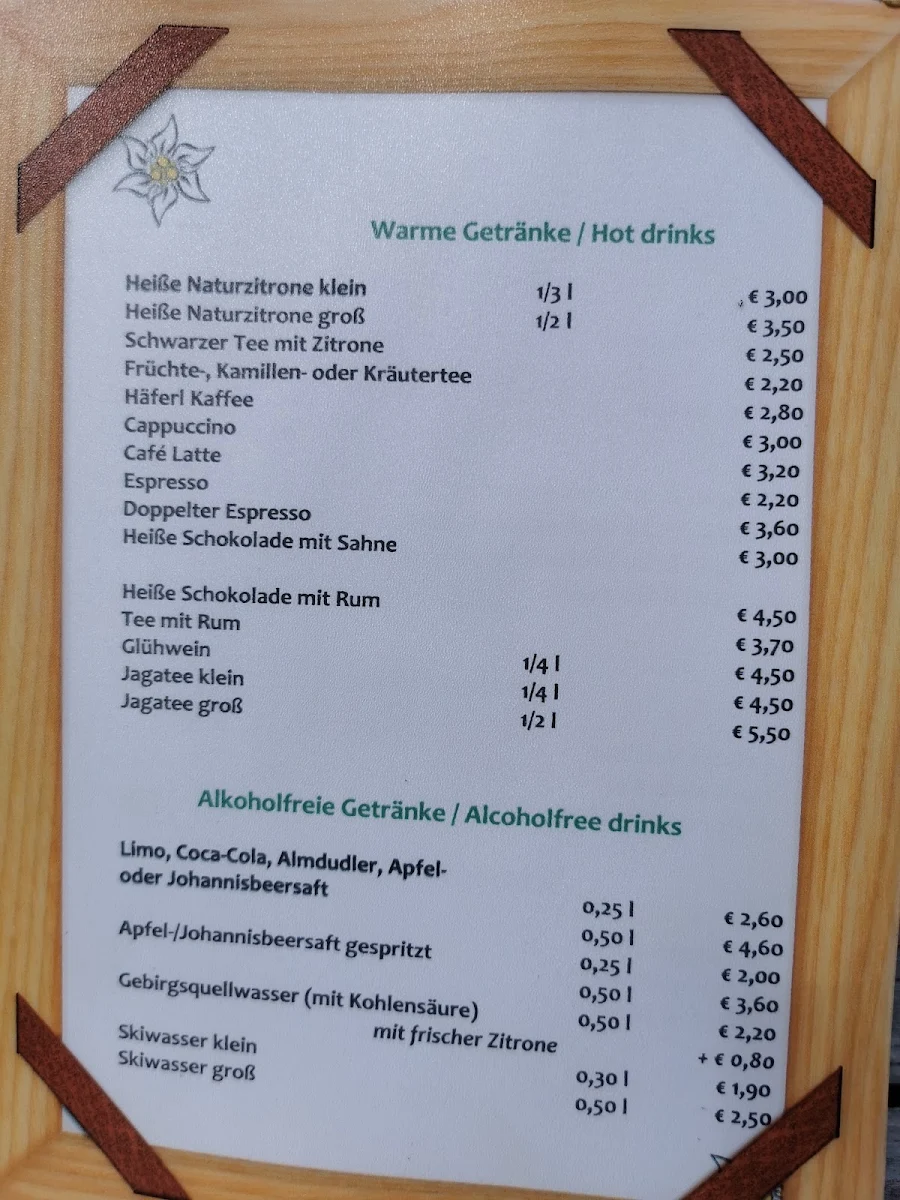 Warme Getränke / Hot drinks
Heiße Naturzitrone klein 1/3 l € 3,00
Heiße Naturzitrone groß 1/2 l € 3,50
Schwarzer Tee mit Zitrone € 2,50
Früchte-, Kamillen- oder Kräutertee € 2,20
Häferl Kaffee € 2,80
Cappuccino € 3,00
Café Latte € 3,20
Espresso € 2,20
Doppelter Espresso € 3,60
Heiße Schokolade mit Sahne € 3,00
Heiße Schokolade mit Rum € 4,50
Tee mit Rum € 3,70
Glühwein 1/4 l € 4,50
Jagatee klein 1/4 l € 4,50
Jagatee groß 1/2 l € 5,50
Alkoholfreie Getränke / Alcoholfree drinks
Limo, Coca-Cola, Almdudler, Apfel-
oder Johannisbeersaft 0,25 l € 2,60
0,50 l € 4,60
Apfel-/Johannisbeersaft gespritzt 0,25 l € 2,00
0,50 l € 3,60
Gebirgsquellwasser (mit Kohlensäure) 0,50 l € 2,20
mit frischer Zitrone + € 0,80
Skiwasser klein 0,30 l € 1,90
Skiwasser groß 0,50 l € 2,50